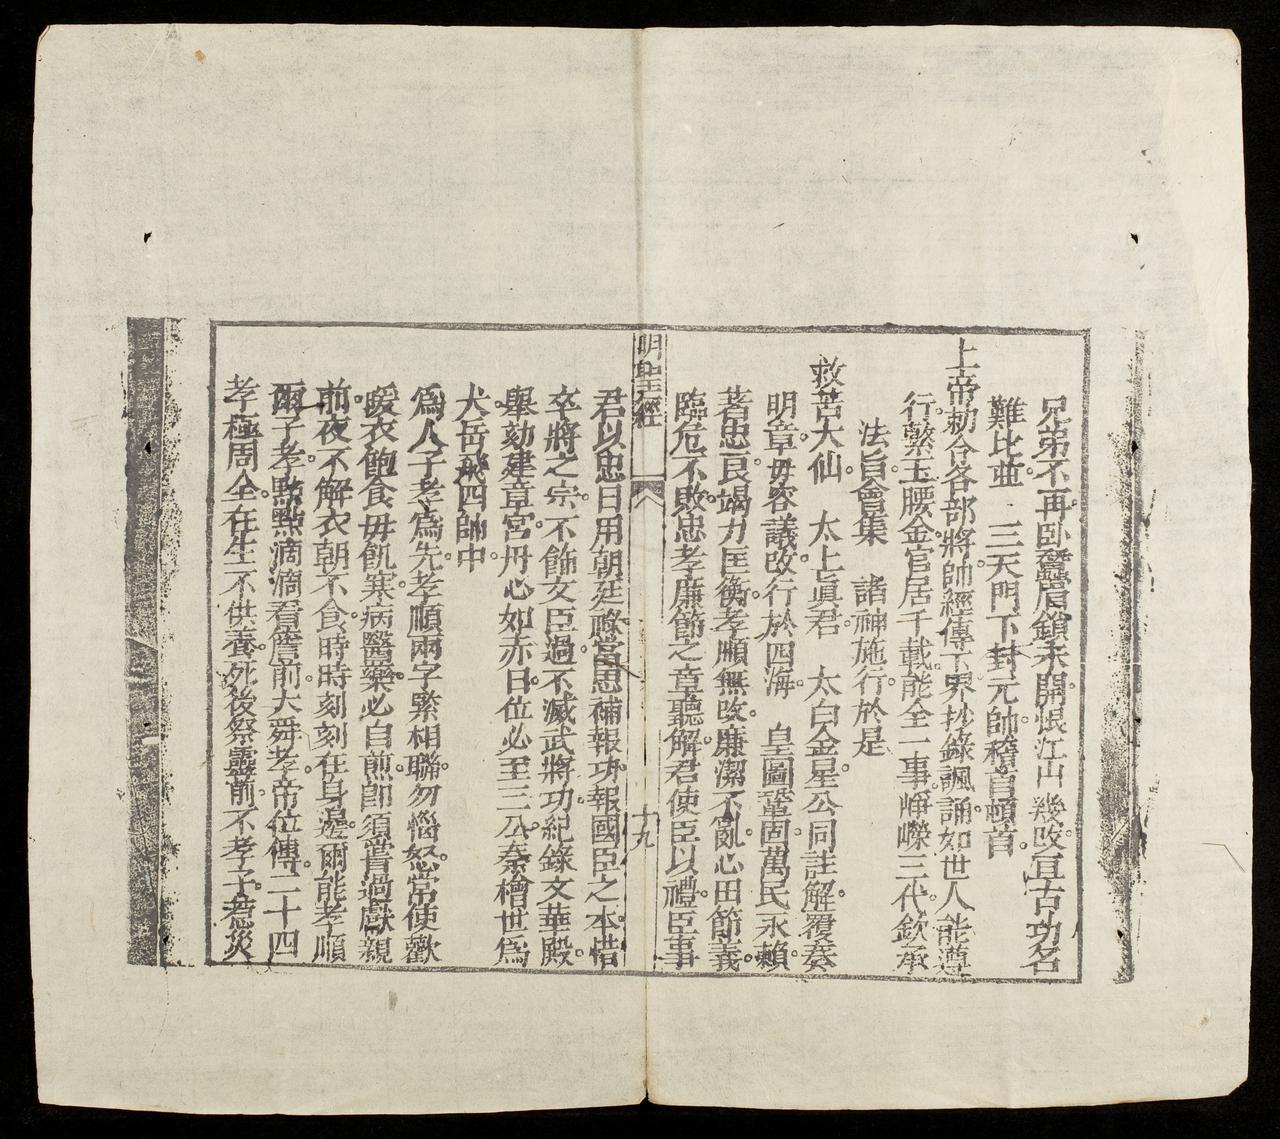 兄弟不再。臥蠶眉鎖未開。恨江山幾改。亘古功名
難比並。三天門下封元帥。稽首頓首。
上帝勅合各部將帥。經傳下界抄錄諷誦。如世人能遵
行。繫玉腰金官居千載。能全一事。崢嶸三代。欽承
法旨。會集　諸神施行。於是
救苦大仙　太上眞君。　太白金星。公同註解。覆奏
明章。毋容議改。行於四海　皇圖鞏固。萬民永賴。
著忠良竭力匡衡。孝順無改。廉潔不亂。心田節義。
臨危不敗。忠孝廉節之章聽解。君使臣以禮。臣事
明聖經
十九
君以忠。日用朝廷祿。當思補報功。報國臣之本。惜
卒將之宗。不飾文臣過。不滅武將功。紀錄文華殿。
舉効建章宮。丹心如赤日。位必至三公。秦檜世爲
犬。岳飛四帥中。
爲人子孝爲先。孝順兩字緊相聯。勿惱怒。常使歡。
暖衣飽食毋飢寒。病醫藥。必自煎。卽須嘗過獻親
前。夜不解衣朝不食。時時刻刻在身邊。爾能孝順
爾子孝。點點滴滴看簷前。大舜孝。帝位傳。二十四
孝極周全。在生不供養。死後祭靈前。不孝子。惹災